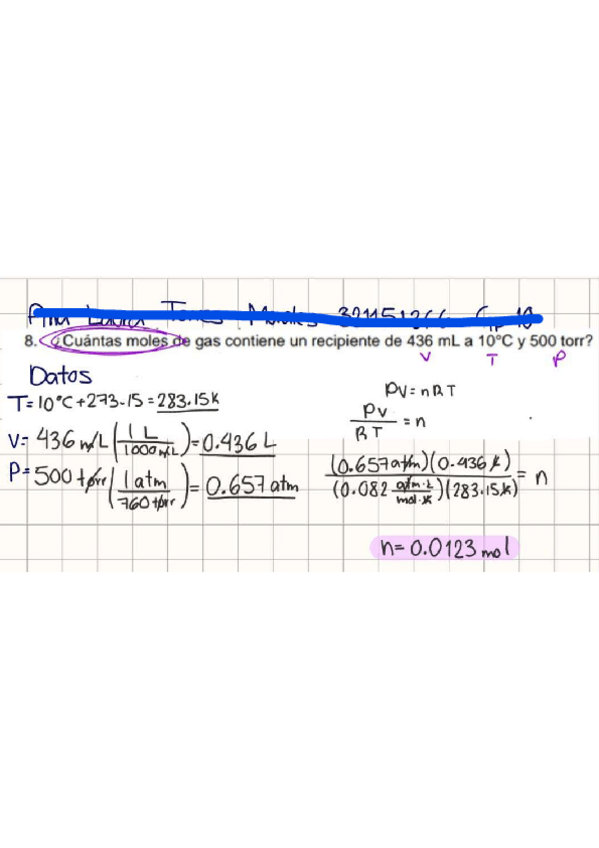 8. ¿Cuántas moles de gas contiene un recipiente de 436 mL a 10°C y 500 torr?
V T P
Datos
T=10°C+273.15=283.15K
V= 436 mL (1 L / 1000 mL) = 0.436 L
P= 500 torr (1 atm / 760 torr) = 0.657 atm
PV=nRT
PV / RT = n
(0.657 atm)(0.436 L) / (0.082 atm·L / mol·K)(283.15K) = n
n= 0.0123 mol